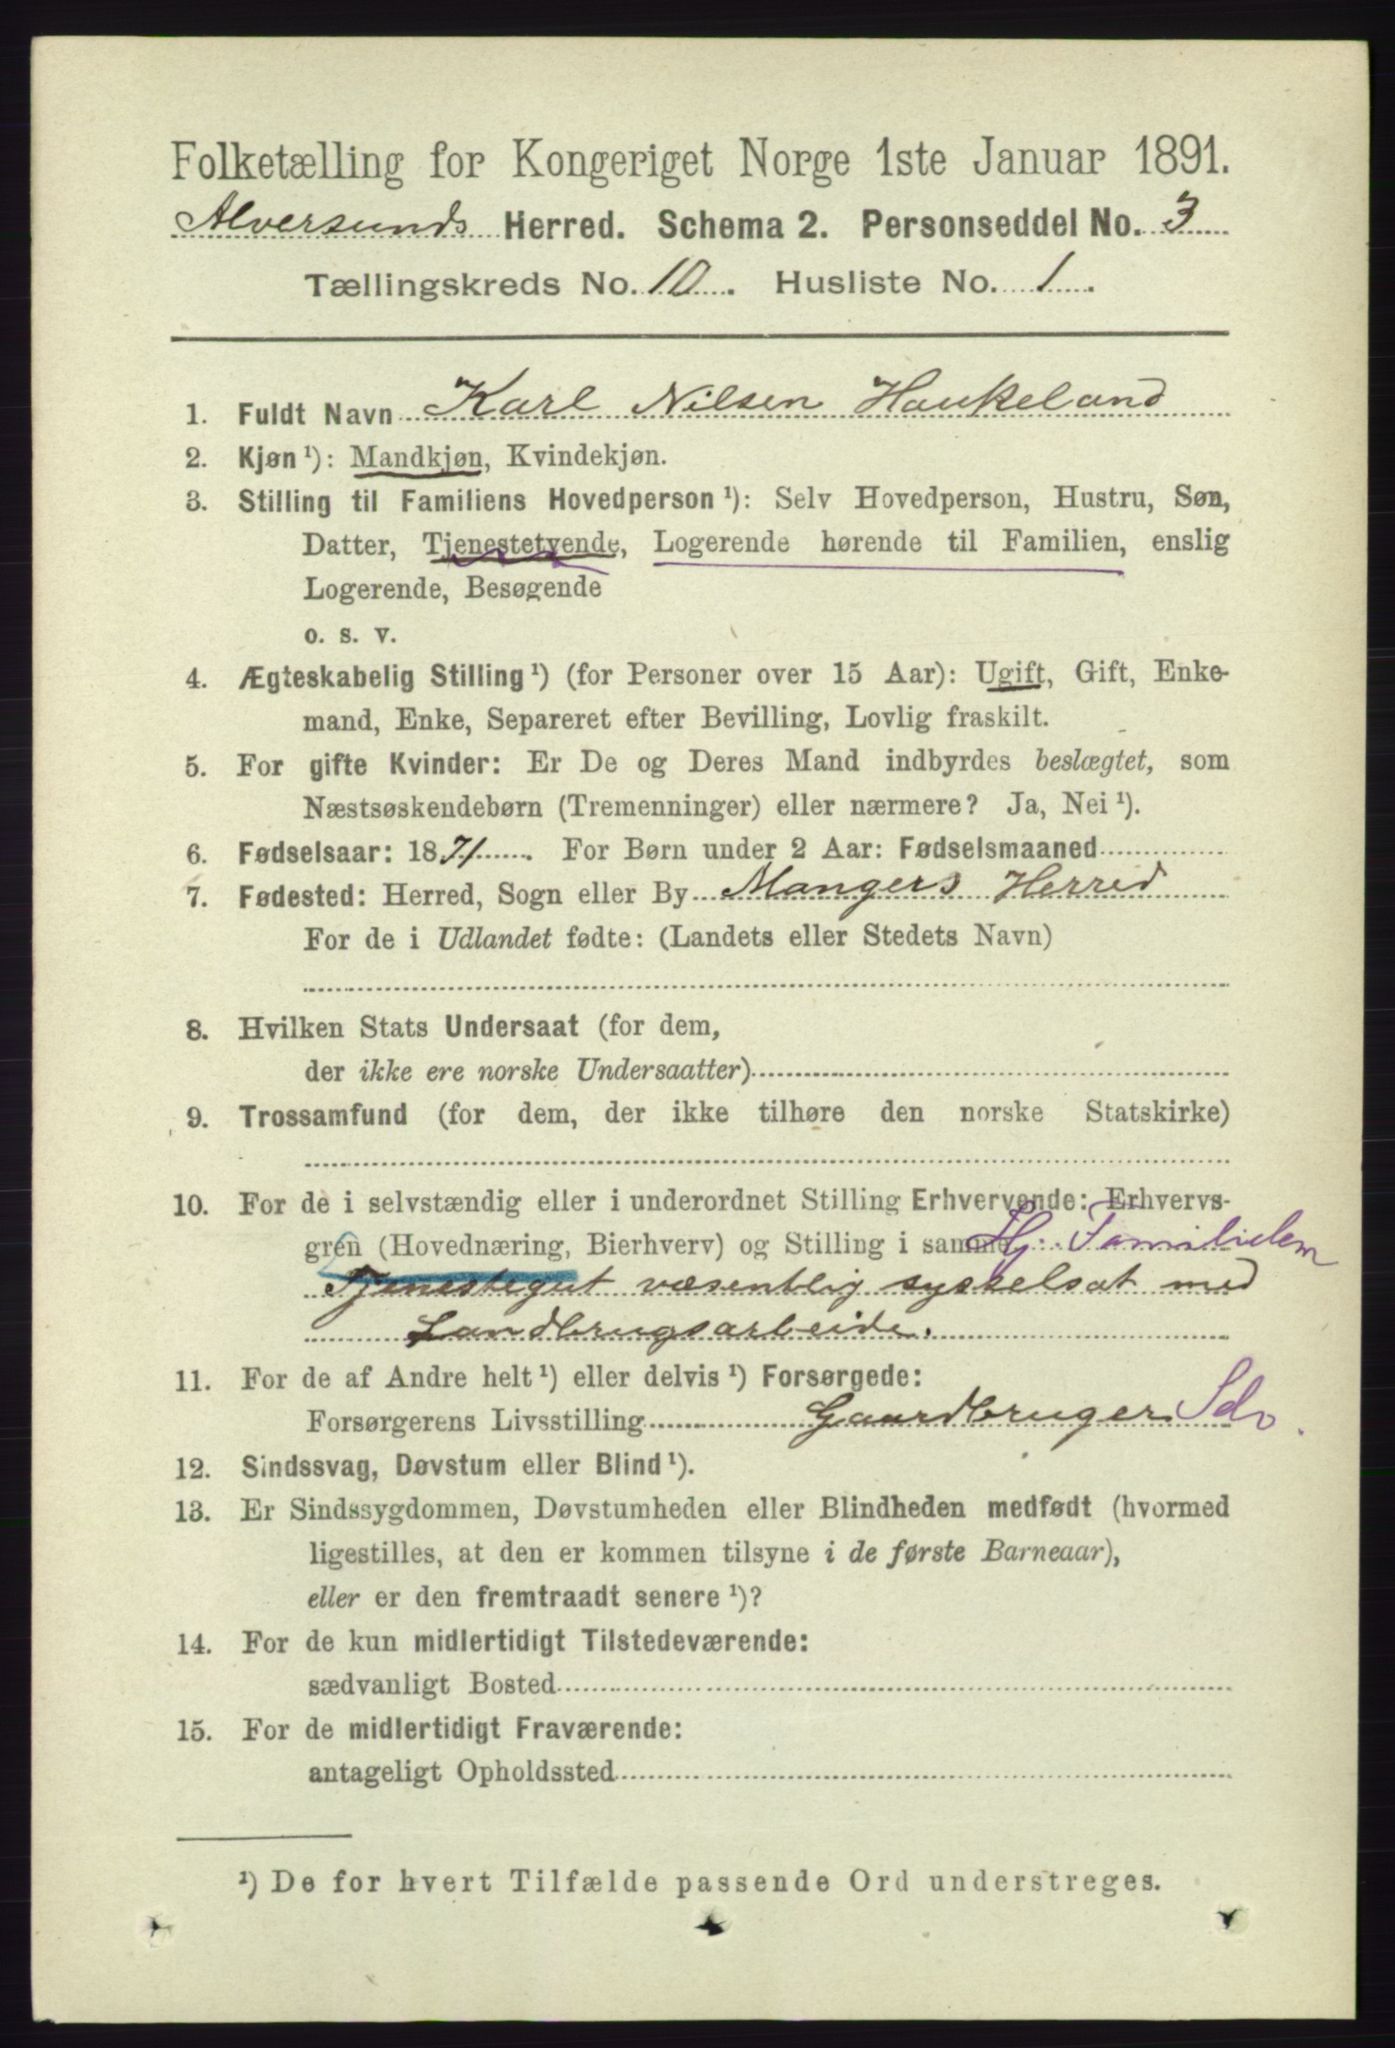 Folketælling for Kongeriget Norge 1ste Januar 1891.
Alversunds Herred. Schema 2. Personseddel No. 3
Tællingskreds No. 10. Husliste No. 1.
1. Fuldt Navn Karl Nilsen Haukeland
2. Kjøn ¹): Mandkjøn, Kvindekjøn.
3. Stilling til Familiens Hovedperson ¹): Selv Hovedperson, Hustru, Søn,
Datter, Tjenestetyende, Logerende hørende til Familien, enslig
Logerende, Besøgende
o. s. v.
4. Ægteskabelig Stilling ¹) (for Personer over 15 Aar): Ugift, Gift, Enke-
mand, Enke, Separeret efter Bevilling, Lovlig fraskilt.
5. For gifte Kvinder: Er De og Deres Mand indbyrdes beslægtet, som
Næstsøskendebørn (Tremenninger) eller nærmere? Ja, Nei ¹).
6. Fødselsaar: 1871. For Børn under 2 Aar: Fødselsmaaned
7. Fødested: Herred, Sogn eller By Mangers Herred
For de i Udlandet fødte: (Landets eller Stedets Navn)
8. Hvilken Stats Undersaat (for dem,
der ikke ere norske Undersaatter)
9. Trossamfund (for dem, der ikke tilhøre den norske Statskirke)
10. For de i selvstændig eller i underordnet Stilling Erhvervende: Erhvervs-
gren (Hovednæring, Bierhverv) og Stilling i samme Hj. Familielem
Tjenestegut væsentlig sysselsat med
Landbrugsarbeide.
11. For de af Andre helt ¹) eller delvis ¹) Forsørgede:
Forsørgerens Livsstilling Gaardbruger Selv
12. Sindssvag, Døvstum eller Blind ¹).
13. Er Sindssygdommen, Døvstumheden eller Blindheden medfødt (hvormed
ligestilles, at den er kommen tilsyne i de første Barneaar),
eller er den fremtraadt senere ¹)?
14. For de kun midlertidigt Tilstedeværende:
sædvanligt Bosted
15. For de midlertidigt Fraværende:
antageligt Opholdssted
¹) De for hvert Tilfælde passende Ord understreges.